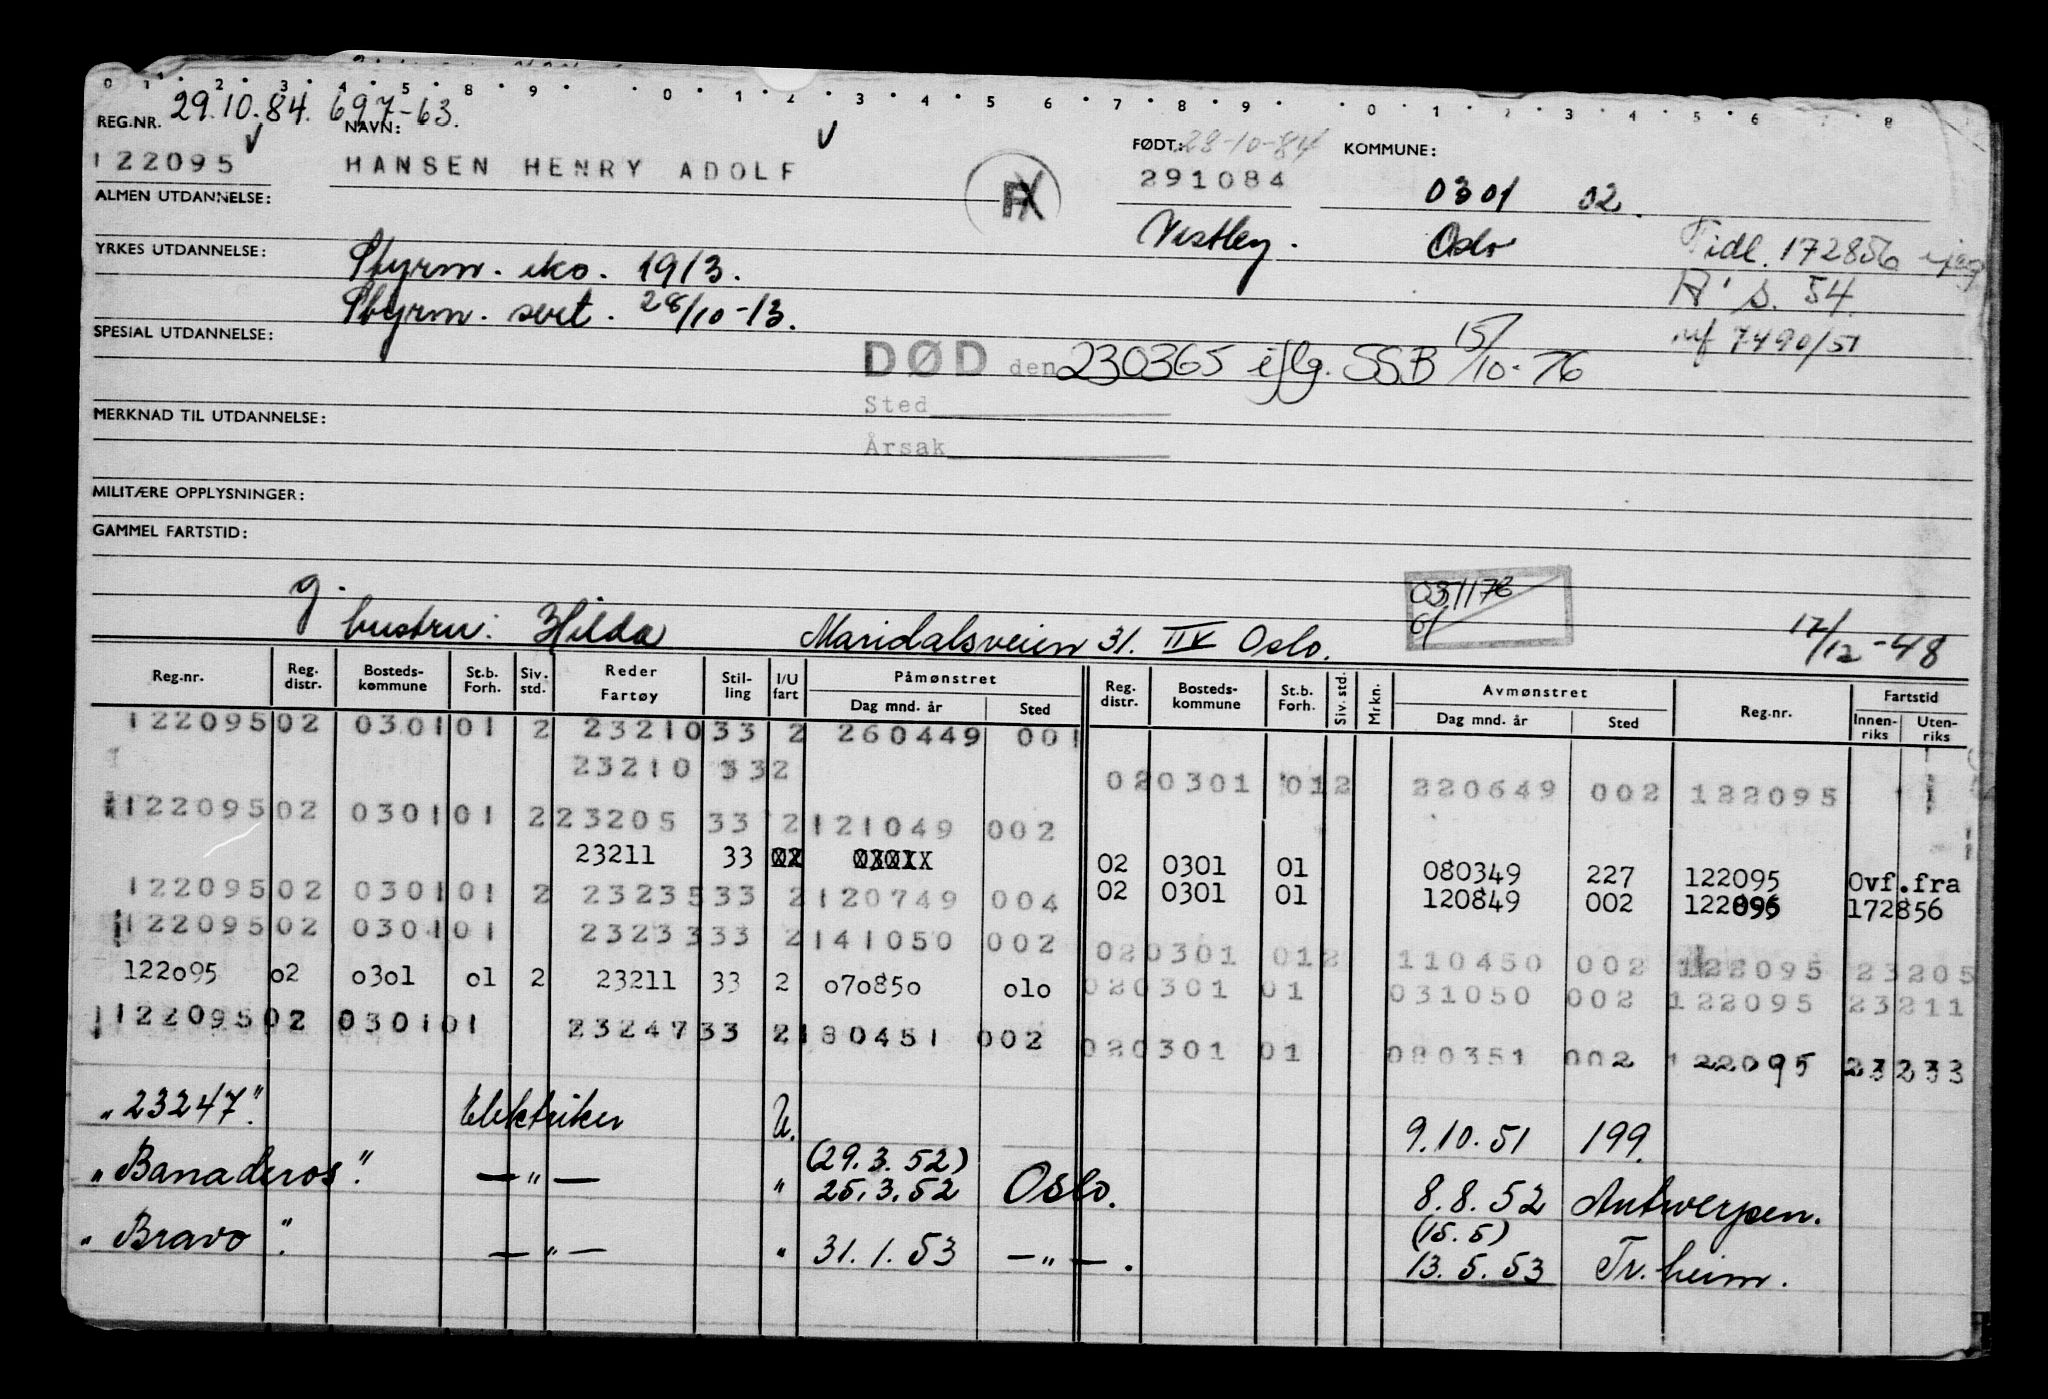 0 1 2 3 4 5 8 9 0 1 2 3 4 5 6 7 8 9 0 1 2 3 4 5 6 7 8
REG.NR. 29.10.84. 697-63.
NAVN: FØDT: 28-10-84 KOMMUNE:
122095 HANSEN HENRY ADOLF 291084 0301 02.
ALMEN UTDANNELSE: Vestby. Oslo
Tidl. 172856
YRKES UTDANNELSE: Styrm. eks. 1913.
A' s. 54.
Styrm. sert. 28/10-13.
SPESIAL UTDANNELSE: 7490/51
DØD den 230365 iflg. SSB 15/10-76
Sted
MERKNAD TIL UTDANNELSE:
Årsak
MILITÆRE OPPLYSNINGER:
GAMMEL FARTSTID:
g. 031176
61
hustru: Hilda Maridalsveien 31. IV Oslo. 17/12-48
Reg.nr. Reg. distr. Bosteds-kommune St.b. Forh. Siv. std. Reder Fartøy Stil-ling I/U fart Påmønstret Dag mnd. år Sted Reg. distr. Bosteds-kommune St.b. Forh. Siv. std. Mrkn. Avmønstret Dag mnd. år Sted Reg.nr. Fartstid Innen-riks Uten-riks
122095 02 0301 01 2 23210 33 2 260449 001
23210 33 2 02 0301 01 2 220649 002 122095
122095 02 0301 01 2 23205 33 2 121049 002
23211 33 02 0301X 02 0301 01 080349 227 122095 Ovf.fra
122095 02 0301 01 2 23235 33 2 120749 004 02 0301 01 120849 002 122095 172856
122095 02 0301 01 23233 33 2 141050 002 02 0301 01 2 110450 002 122095 23205
122095 02 0301 01 2 23211 33 2 070850 010 02 0301 01 031050 002 122095 23211
122095 02 0301 01 23247 33 2 180451 002 02 0301 01 080351 002 122095 23233
"23247". Elektriker U. 9.10.51 199.
(29.3.52)
"Banaderos". — " — " 25.3.52 Oslo. 8.8.52 Antwerpen.
(15.5)
"Bravo". — " — " 31.1.53 — " — . 13.5.53 Tr.heim.